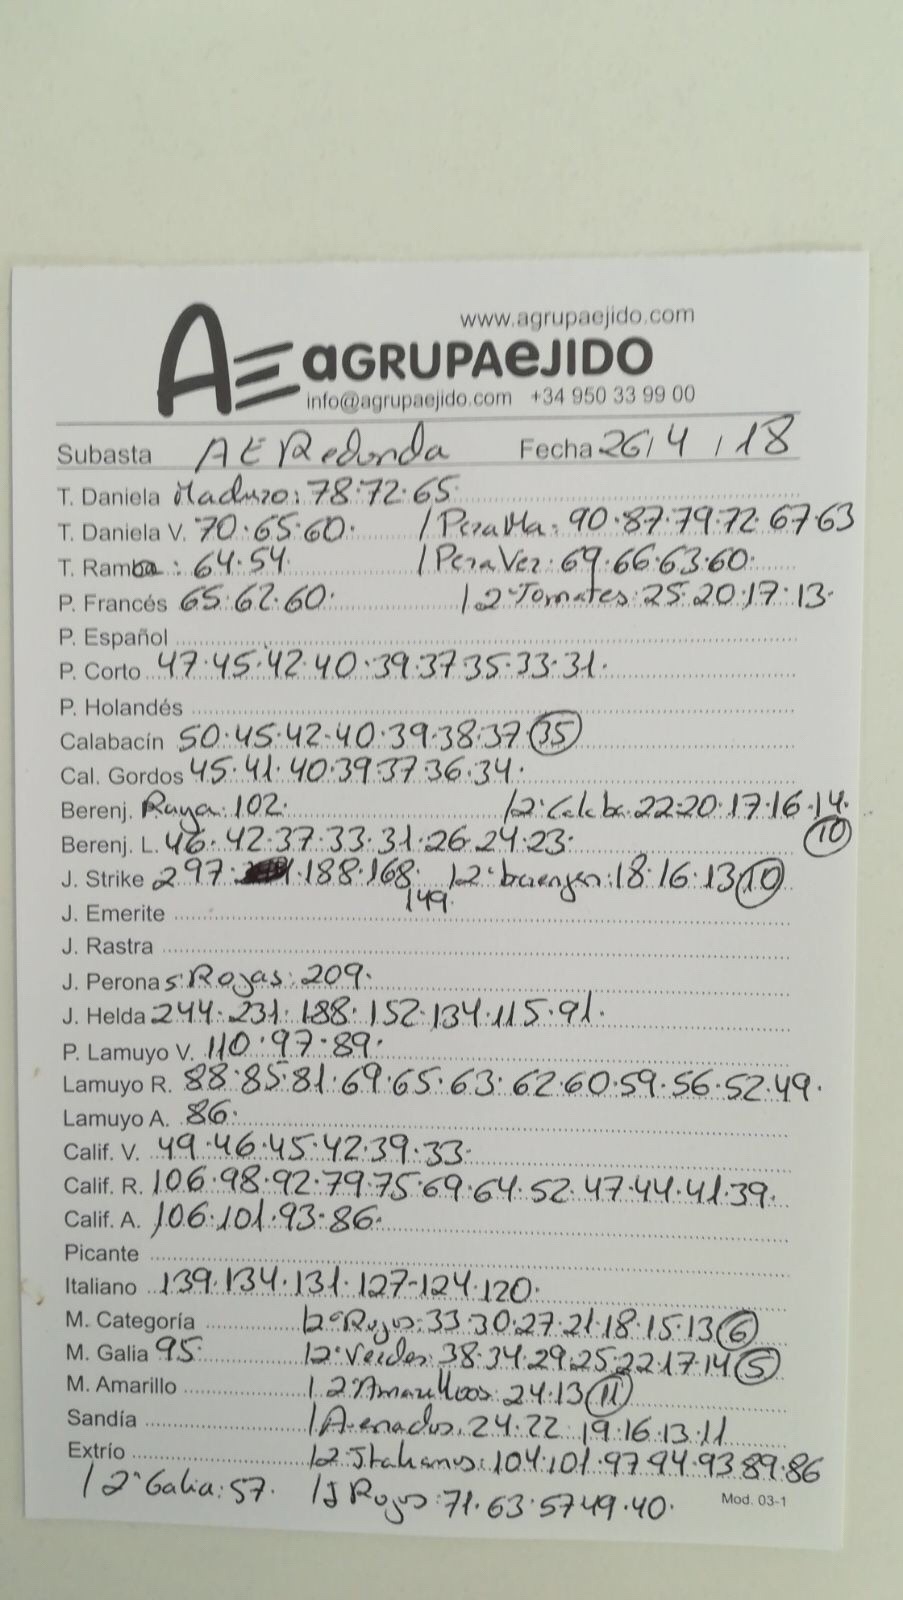 www.agrupaejido.com
AE aGRUPAeJIDO
info@agrupaejido.com +34 950 33 99 00
Subasta AE Redonda Fecha 26/4/18
T. Daniela Maduro: 78·72·65·
T. Daniela V. 70·65·60· / Pera Ma: 90·87·79·72·67·63
T. Ramba: 64·54· / Pera Ver: 69·66·63·60·
P. Francés 65·62·60· / 2ª Tomates: 25·20·17·13·
P. Español
P. Corto 47·45·42·40·39·37·35·33·31·
P. Holandés
Calabacín 50·45·42·40·39·38·37·35
Cal. Gordos 45·41·40·39·37·36·34·
Berenj. Raya: 102· / 2ª Calaba: 22·20·17·16·14·
10
Berenj. L. 46·42·37·33·31·26·24·23·
J. Strike 297· ·188·168· / 2ª berengen: 18·16·13·10
149·
J. Emerite
J. Rastra
J. Peronas Rojas: 209·
J. Helda 244·231·188·152·134·115·91·
P. Lamuyo V. 110·97·89·
Lamuyo R. 88·85·81·69·65·63·62·60·59·56·52·49·
Lamuyo A. 86·
Calif. V. 49·46·45·42·39·33·
Calif. R. 106·98·92·79·75·69·64·52·47·44·41·39·
Calif. A. 106·101·93·86·
Picante
Italiano 139·134·131·127·124·120·
M. Categoría / 2ª Rojos: 33·30·27·21·18·15·13 6
M. Galia 95· / 2ª Verdes: 38·34·29·25·22·17·14 5
M. Amarillo / 2ª Amarillos: 24·13 11
Sandía / Asenados: 24·22·19·16·13·11
Extrío / 2ª Italianos: 104·101·97·94·93·89·86
/ 2ª Galia: 57· / J Rojos: 71·63·57·49·40· Mod. 03-1